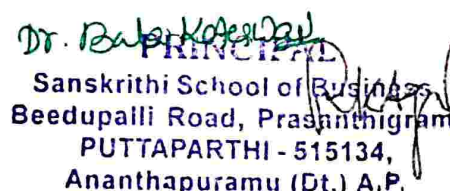 Dr. Bala Koteswari
PRINCIPAL
Sanskrithi School of Business
Beedupalli Road, Prasanthigram
PUTTAPARTHI - 515134,
Ananthapuramu (Dt.) A.P.